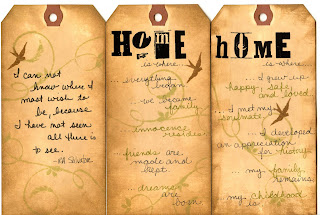 I can not
know where I
most wish to
be, because
I have not seen
all there is
to see.
HOME
is where...
... everything
began
... we became
family.
... innocence
resides.
... friends are
made and
kept
... dreams
are
born
HOME
is where...
... I grew up
happy, safe,
and loved.
... I met my
soulmate.
... I developed
an appreciation
for history.
... my family
remains.
... my childhood
is